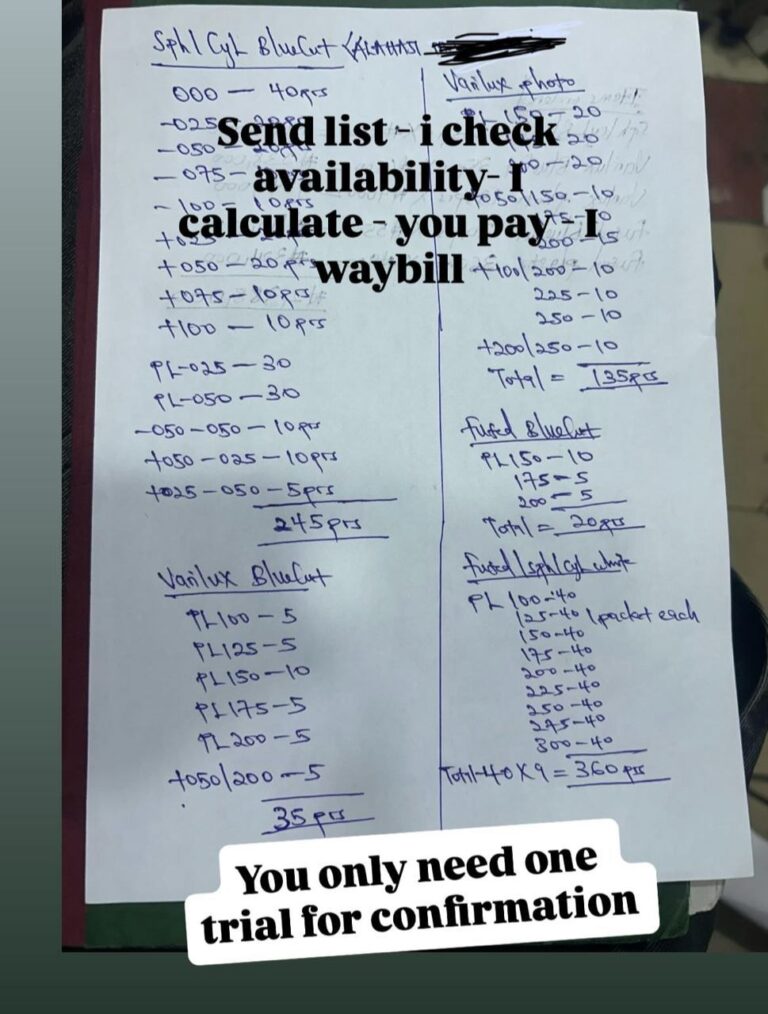 Sphl Cyl BlueCut
000 — 40prs
-025
-050
-075 —
-100 — 10prs
+025
+050 — 20prs
+075 — 10prs
+100 — 10prs
PL-025 — 30
PL-050 — 30
-050 -050 — 10prs
+050 -025 — 10prs
+025 -050 — 5prs
245prs
Varilux BlueCut
PL100 — 5
PL125 — 5
PL150 — 10
PL175 — 5
PL200 — 5
+050/200 — 5
35prs
Varilux photo
PL 150 — 20
20
200 — 20
+050/150 — 10
200 — 15
+100/200 — 10
225 — 10
250 — 10
+200/250 — 10
Total = 135prs
fused BlueCut
PL150 — 10
175 — 5
200 — 5
Total = 20prs
fused/sphl cyl white
PL 100 — 40
125 — 40 1 packet each
150 — 40
175 — 40
200 — 40
225 — 40
250 — 40
275 — 40
300 — 40
Total — 40 X 9 = 360prs
Send list - i check
availability- I
calculate - you pay - I
waybill
You only need one
trial for confirmation